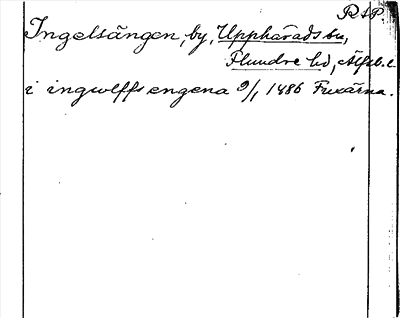 R.A.P.
Ingelsängen, by, Upphärads sn,
Flundre hd, Älfsb. l.
i ingwlffs engena 9/1 1486 Fuxärna.